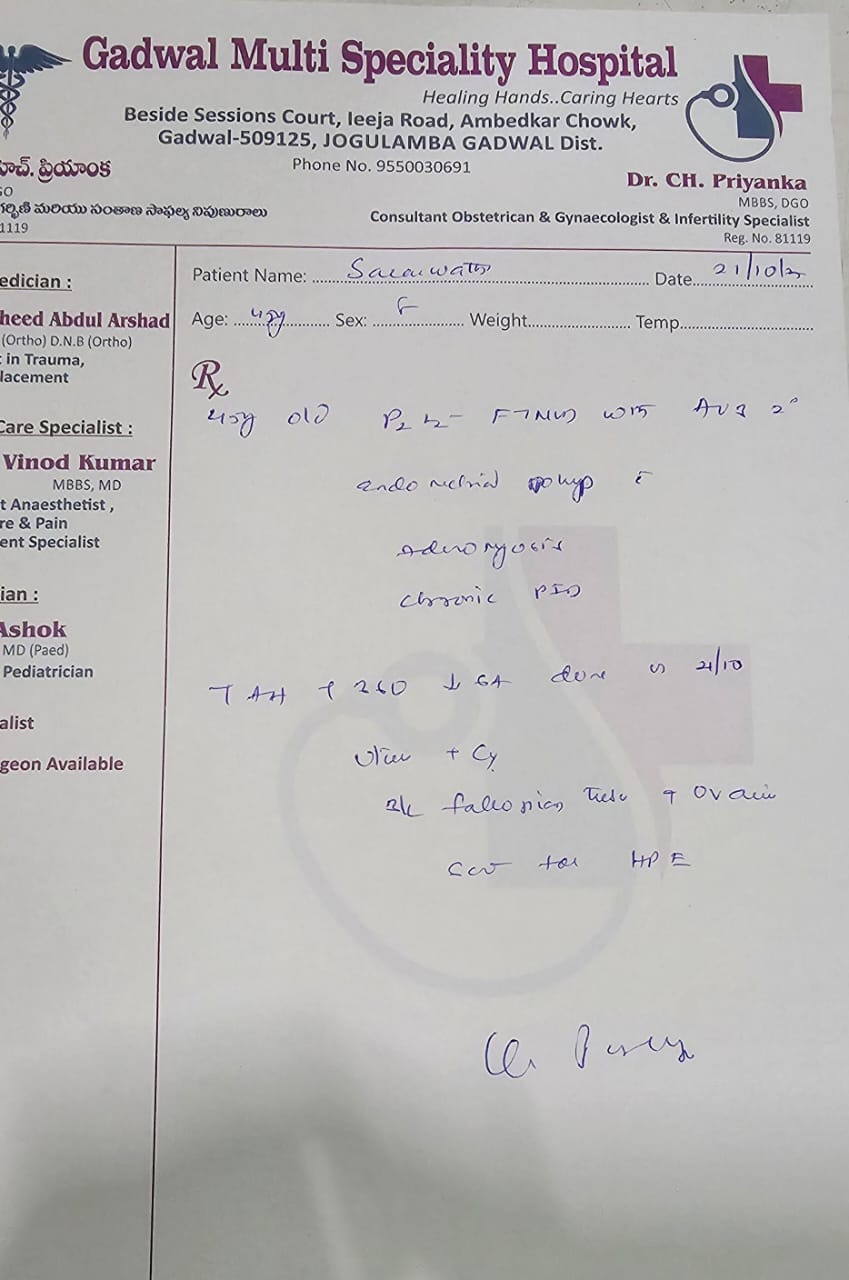 Gadwal Multi Speciality Hospital
Healing Hands..Caring Hearts
Beside Sessions Court, Ieeja Road, Ambedkar Chowk,
Gadwal-509125, JOGULAMBA GADWAL Dist.
Phone No. 9550030691
ప్రియాంక
మరియు సంతాన సాఫల్య నిపుణురాలు
1119
Dr. CH. Priyanka
MBBS, DGO
Consultant Obstetrican & Gynaecologist & Infertility Specialist
Reg. No. 81119
edician :
heed Abdul Arshad
(Ortho) D.N.B (Ortho)
t in Trauma,
lacement
Care Specialist :
Vinod Kumar
MBBS, MD
t Anaesthetist ,
re & Pain
ent Specialist
ian :
Ashok
MD (Paed)
Pediatrician
alist
geon Available
Patient Name: Date 21/10/
Age: Sex: F Weight Temp
Rx
old P2 L2 FTNVD with AUB 2°
endometrial polyp c̄
Adenomyosis
chronic PID
TAH + BSO ↓ GA done on 21/10
+ Cx
B/L fallopian tube + ovaries
sent for HPE